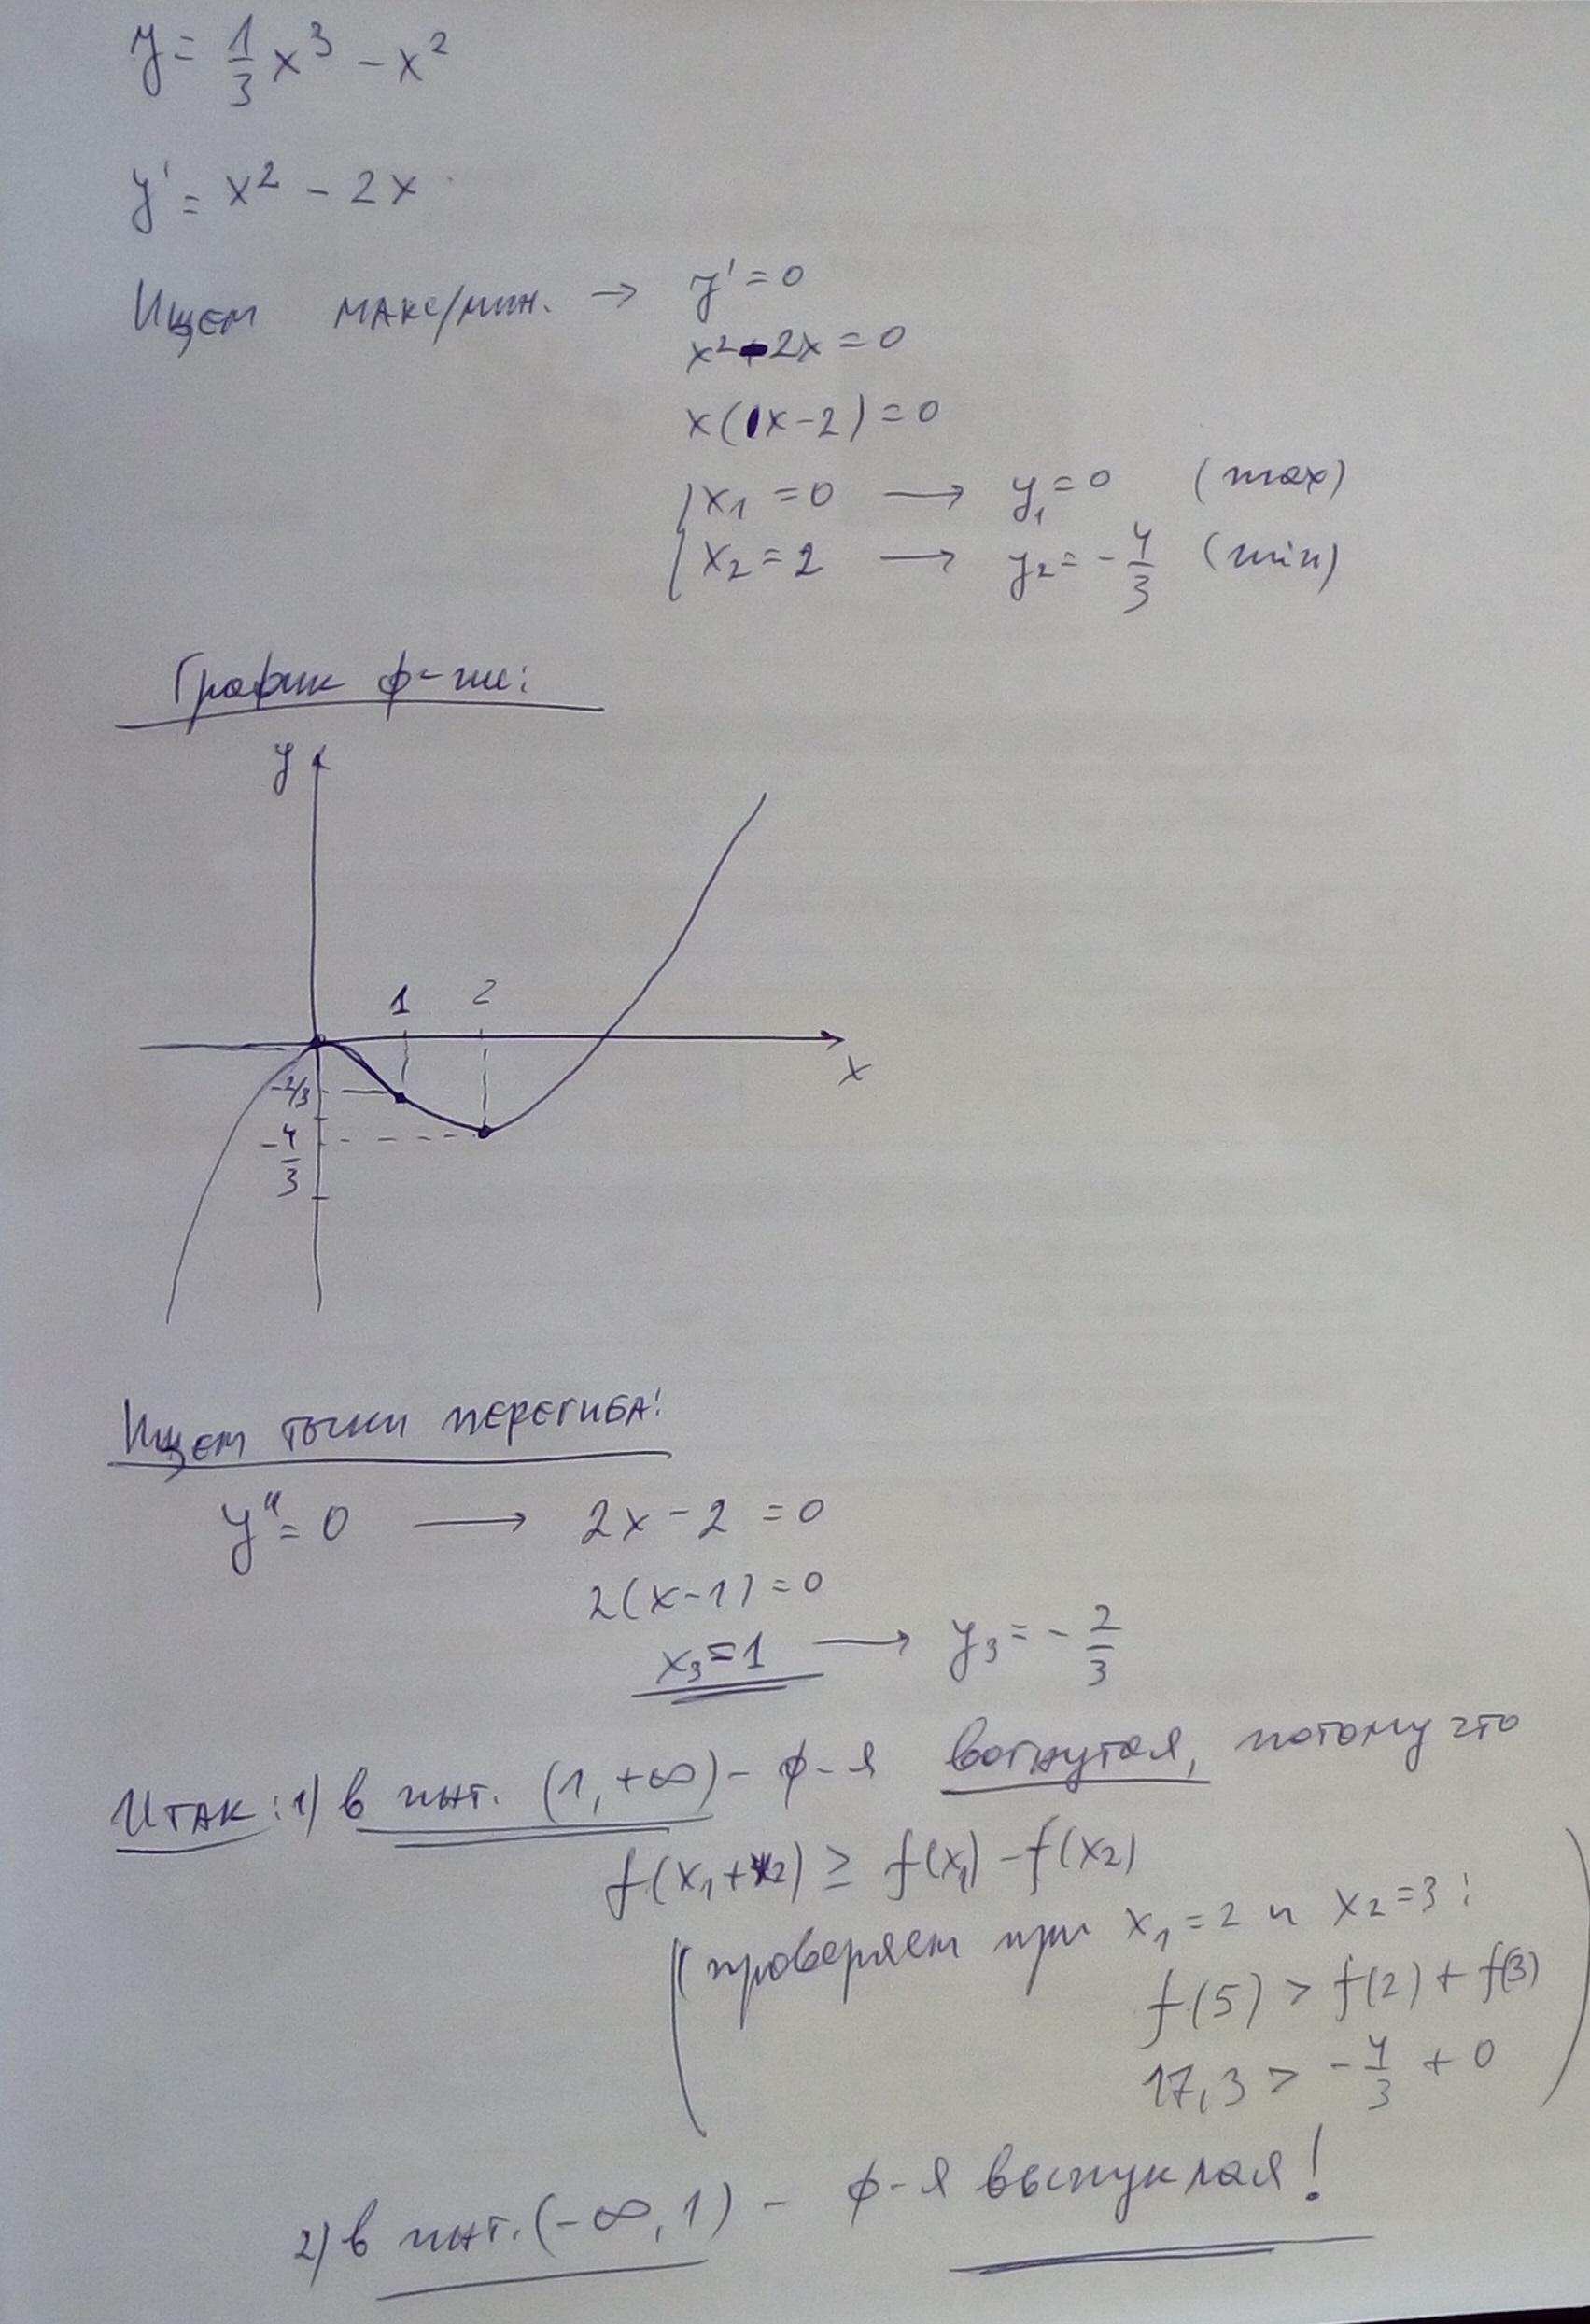 y = 1/3 x³ - x²
y' = x² - 2x
Ищем макс/мин. → y' = 0
x² - 2x = 0
x(x - 2) = 0
x₁ = 0 → y₁ = 0 (max)
x₂ = 2 → y₂ = - 4/3 (min)
График ф-ии:
y
1 2
x
-2/3
- 4/3
Ищем точки перегиба!
y'' = 0 → 2x - 2 = 0
2(x - 1) = 0
x₃ = 1 → y₃ = - 2/3
Итак: 1) в инт. (1, +∞) - ф-я вогнутая, потому что
f(x₁ + x₂) ≥ f(x₁) - f(x₂)
(проверяем при x₁ = 2 и x₂ = 3:
f(5) > f(2) + f(3)
17,3 > - 4/3 + 0)
2) в инт. (-∞, 1) - ф-я выпуклая!